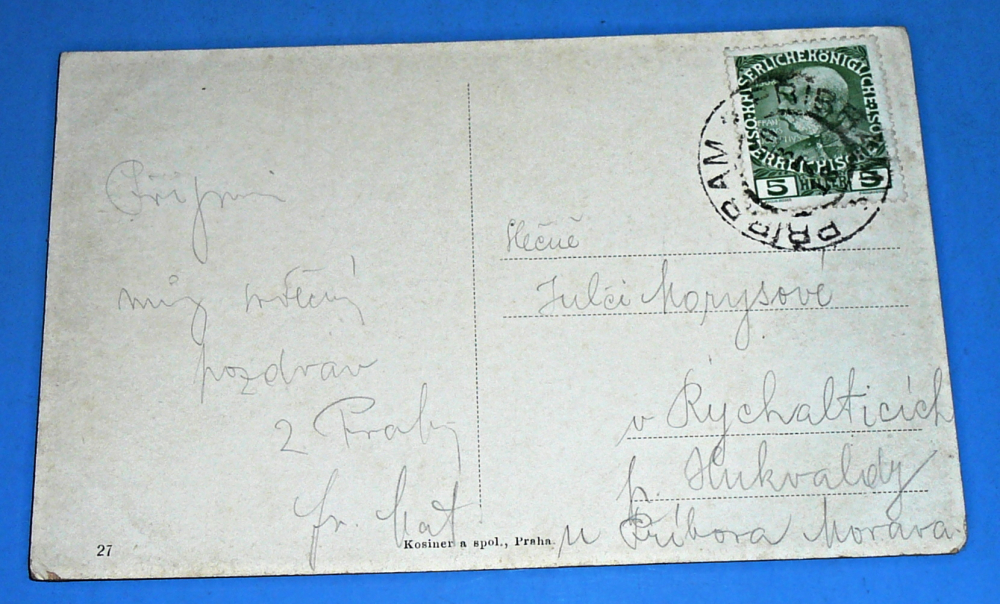 Přijmi
můj srdečný
pozdrav
z Prahy
fr. Mat
27
Kosiner a spol., Praha.
KAISERLICHE KÖNIGLICHE
5 HELLER 5
PŘIBRAM PŘIBRAM
Slečně
Julči Morysové
v Rychalticích
p. Hukvaldy
u Příbora Morava